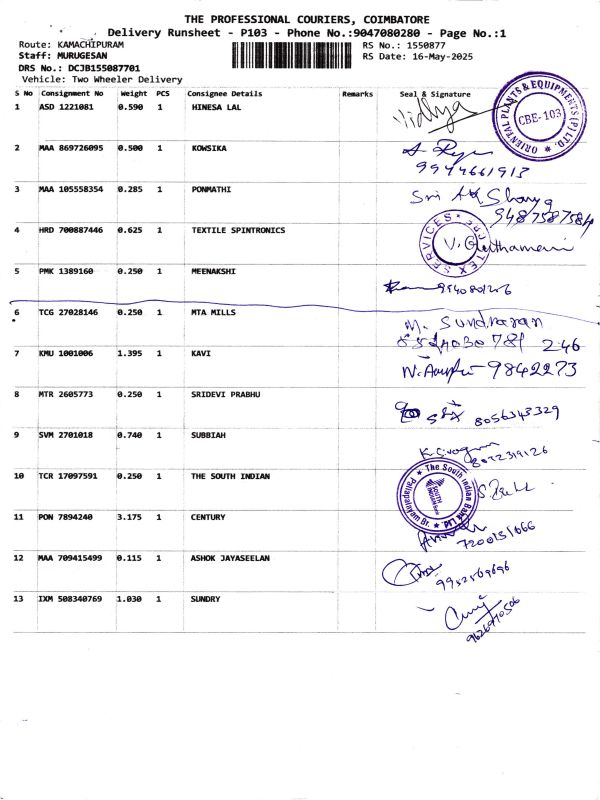 THE PROFESSIONAL COURIERS, COIMBATORE
Delivery Runsheet - P103 - Phone No.:9047080280 - Page No.:1
Route: KAMACHIPURAM RS No.: 1550877
Staff: MURUGESAN RS Date: 16-May-2025
DRS No.: DCJB155087701
Vehicle: Two Wheeler Delivery
S No Consignment No Weight PCS Consignee Details Remarks Seal & Signature
1 ASD 1221081 0.590 1 HINESA LAL Vidhya
ORIENEAL PLANTS & EQUIPMENTS (P) LTD. CBE-103
2 MAA 869726095 0.500 1 KOWSIKA
9944661913
3 MAA 105558354 0.285 1 PONMATHI Sri
9487587584
4 HRD 700887446 0.625 1 TEXTILE SPINTRONICS
SERVICES
5 PMK 1389160 0.250 1 MEENAKSHI
6 TCG 27028146 0.250 1 MTA MILLS M. Sundraran
7 KMU 1001006 1.395 1 KAVI
9842273
8 MTR 2605773 0.250 1 SRIDEVI PRABHU
8056343329
9 SVM 2701018 0.740 1 SUBBIAH
10 TCR 17097591 0.250 1 THE SOUTH INDIAN
The South Indian Bank Ltd. Pallapalayam Br. SOUTH INDIAN Bank
11 PON 7894240 3.175 1 CENTURY
12 MAA 709415499 0.115 1 ASHOK JAYASEELAN
9952569696
13 IXM 508340769 1.030 1 SUNDRY